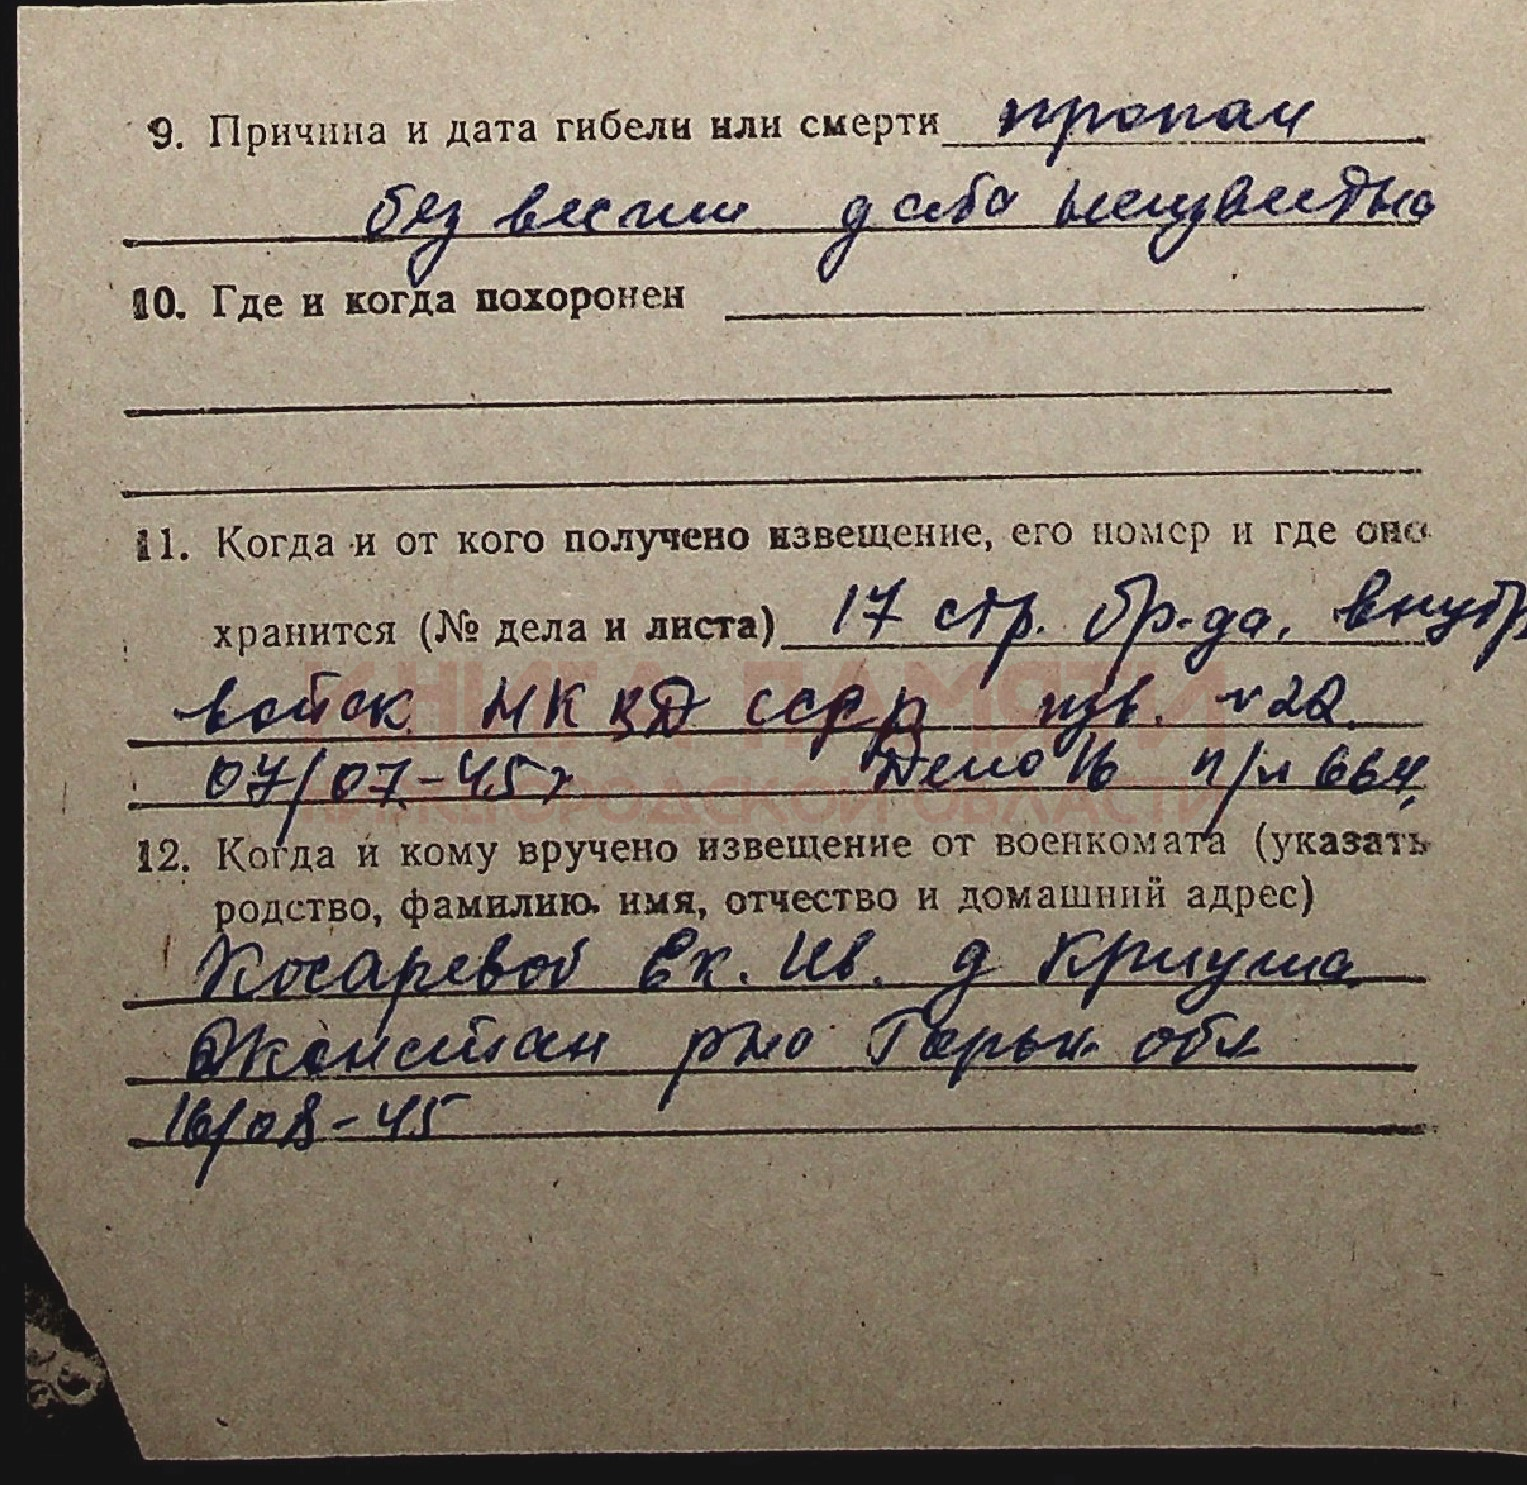 9. Причина и дата гибели или смерти пропал
без вести дата неизвестна
10. Где и когда похоронен
11. Когда и от кого получено извещение, его номер и где оно
хранится (№ дела и листа) 17 стр. бр-да, внутр
войск НКВД СССР изв. №22
КНИГА ПАМЯТИ
07/07-45г Дело 16 п/н 664,
НИЖЕГОРОДСКОЙ ОБЛАСТИ
12. Когда и кому вручено извещение от военкомата (указать
родство, фамилию, имя, отчество и домашний адрес)
Косаревой Ек. Ив. д Криуша
рно Горьк обл
16/08-45